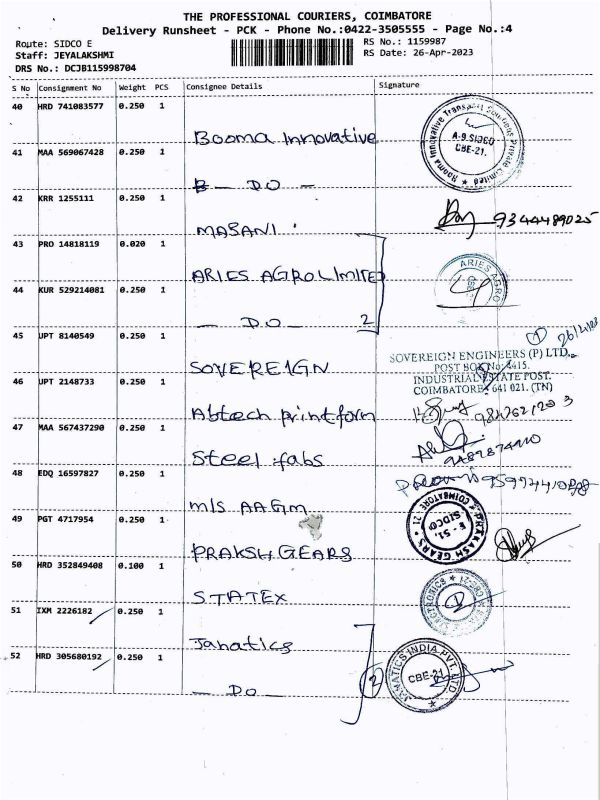 THE PROFESSIONAL COURIERS, COIMBATORE
Delivery Runsheet - PCK - Phone No.:0422-3505555 - Page No.:4
Route: SIDCO E
RS No.: 1159987
Staff: JEYALAKSHMI
RS Date: 26-Apr-2023
DRS No.: DCJB115998704
S No Consignment No Weight PCS Consignee Details Signature
40 HRD 741083577 0.250 1
Booma Innovative
Booma Innovative Transport Solutions Private Limited
A-9.SIDCO
CBE-21.
41 MAA 569067428 0.250 1
B - DO -
42 KRR 1255111 0.250 1
MASANI
9344489025
43 PRO 14818119 0.020 1
ARIES AGRO LIMITED
ARIES AGRO
44 KUR 529214081 0.250 1
- DO - 2
45 UPT 8140549 0.250 1
SOVEREIGN
1 26/4/23
SOVEREIGN ENGINEERS (P) LTD.,
POST BOX No: 4415.
INDUSTRIAL ESTATE POST.
COIMBATORE - 641 021. (TN)
46 UPT 2148733 0.250 1
Abtech printform
47 MAA 567437290 0.250 1
Steel fabs
9489874410
48 EDQ 16597827 0.250 1
M/S AAGM
49 PGT 4717954 0.250 1
PRAKSH GEARS
PRAKASH GEARS COIMBATORE - 21
E - 51,
SIDCO
50 HRD 352849408 0.100 1
STATEX
STATEX ELECTRONICS CBE-21
51 IXM 2226182 0.250 1
Janatics
52 HRD 305680192 0.250 1
- DO - 2
JANATICS INDIA PVT. LTD.
CBE-21